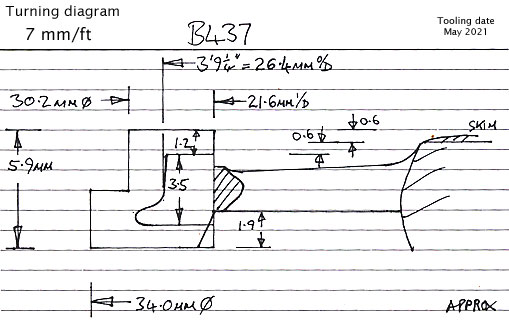 Turning diagram
7 mm/ft
B437
Tooling date
May 2021
3'9¼" = 26.4mm O/D
30.2mm Ø
21.6mm I/D
0.6
0.6
SKIM
1.2
5.9mm
3.5
1.9
34.0mm Ø
APPROX